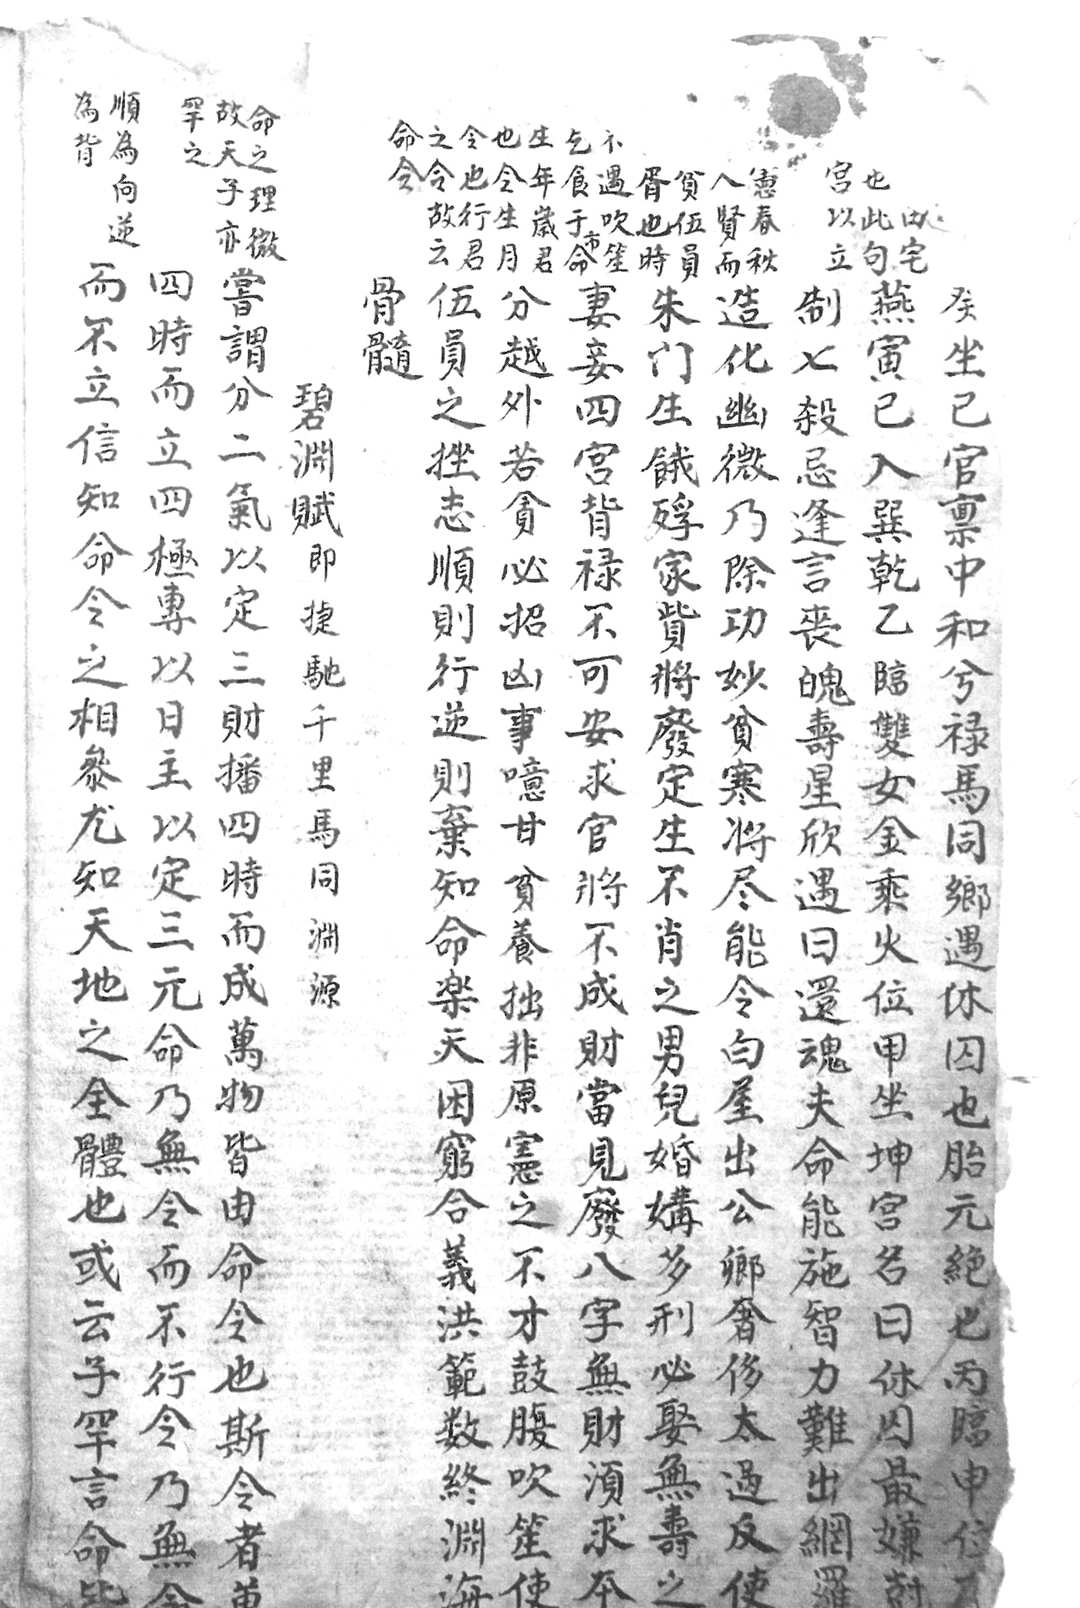 田宅
癸坐巳官禀中和兮禄馬同鄉遇休囚也胎元絶也丙臨申位
也此句
燕寅巳入巽乾乙臨雙女金乘火位甲坐坤宮名曰休囚最嫌尅
宮以立
制七殺忌逢言喪魄壽星欣遇曰還魂夫命能施智力難出網羅
憲春秋
人賢而
造化幽微乃除功妙貧寒将尽能令白屋出公鄉奢侈太過反使
貧伍員
胥也時
朱门生餓殍家貲將廢定生不肖之男兒婚媾多刑必娶無壽之
不遇吹笙
乞食于市命
妻妾四宮背禄不可妄求官將不成財當見廢八字無財湏求夲
生年歲君
也令生月
分越外若貪必招凶事噫甘貧養拙非原憲之不才鼓腹吹笙使
令也行君
之令故云
伍員之挫志順則行逆則棄知命楽天困窮合義洪範数終淵海
命令
骨髓
碧淵賦即捷馳千里馬同淵源
命之理微
故天子亦
罕之
嘗謂分二氣以定三財播四時而成萬物皆由命令也斯令者萬
四時而立四極專以日主以定三元命乃無令而不行令乃無命
順為向逆
為背
而不立信知命令之相參尤知天地之全體也或云子罕言命皆